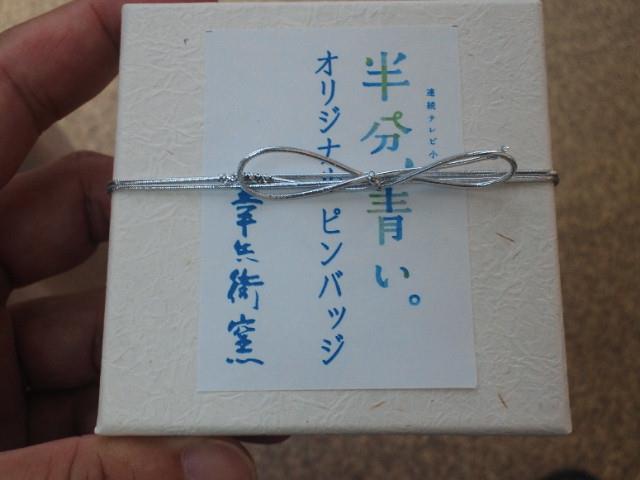 連続テレビ小
半分、青い。
オリジナルピンバッジ
幸兵衛窯